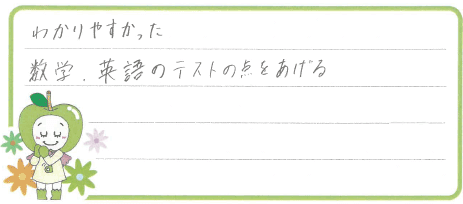 わかりやすかった
数学、英語のテストの点をあげる